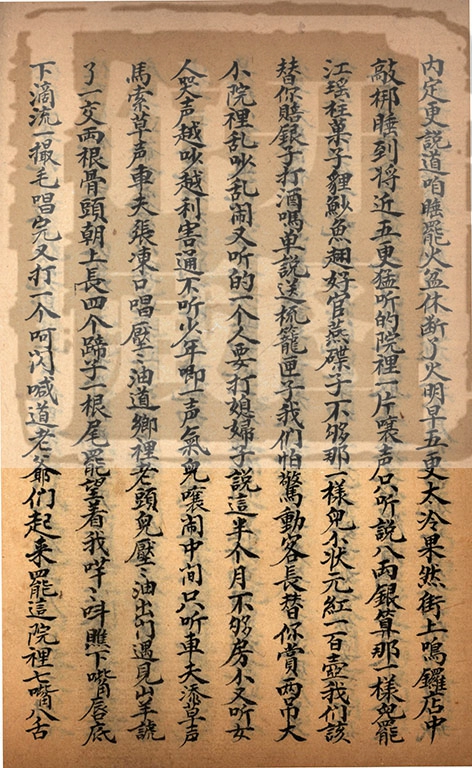 内定更説道咱睡罷火盆休断了火明早五更太冷果然街上鳴鑼店中
敲梆睡到将近五更猛听的院裡一片嚷声只听説八两銀算那一樣兒罷
江瑶柱菓子貍魦魚翅好官燕碟子不够那一樣兒小状元紅一百壺我們該
替你賠銀子打酒嗎単説送梳籠匣子我們怕驚動客長替你賞两吊大
小院裡乱吵乱闹又听的一个人要打媳婦子説這半个月不够房小又听女
人哭声越吵越利害通不听少年喞一声氣兒嚷闹中间只听車夫添草声
馬索草声車夫張凍口唱壓〻油道鄉裡老頭兒壓〻油出门遇見山羊諕
了一交两根骨頭朝上長四个蹄子一根尾罷望着我咩〻呌瞧下嘴唇底
下滴流一撮毛唱完又打一个呵闪喊道老爺們起来罷這院裡七嘴八舌